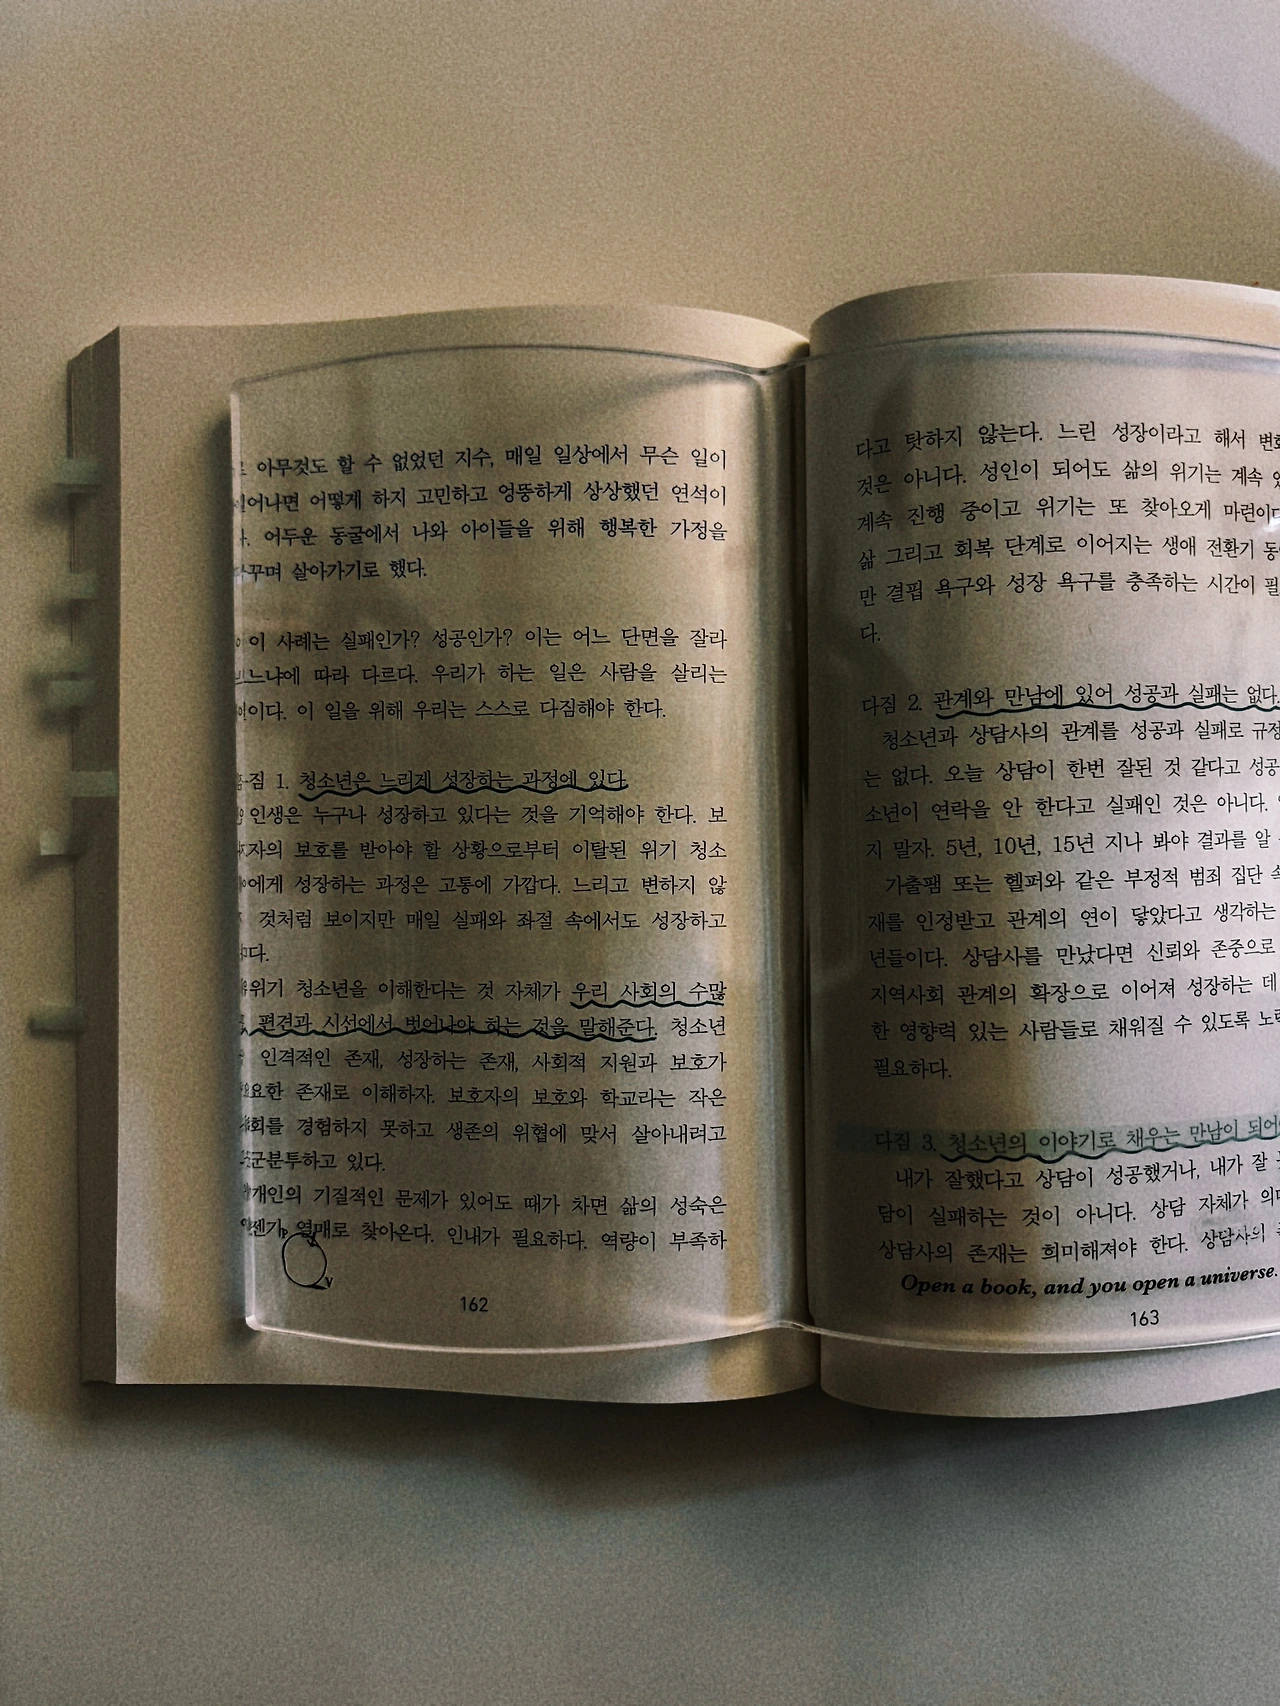 아무것도 할 수 없었던 지수, 매일 일상에서 무슨 일이
일어나면 어떻게 하지 고민하고 엉뚱하게 상상했던 연석이
어두운 동굴에서 나와 아이들을 위해 행복한 가정을
꾸며 살아가기로 했다.
이 사례는 실패인가? 성공인가? 이는 어느 단면을 잘라
보느냐에 따라 다르다. 우리가 하는 일은 사람을 살리는
일이다. 이 일을 위해 우리는 스스로 다짐해야 한다.
다짐 1. 청소년은 느리게 성장하는 과정에 있다.
인생은 누구나 성장하고 있다는 것을 기억해야 한다. 보
호자의 보호를 받아야 할 상황으로부터 이탈된 위기 청소
년에게 성장하는 과정은 고통에 가깝다. 느리고 변하지 않
것처럼 보이지만 매일 실패와 좌절 속에서도 성장하고
있다.
위기 청소년을 이해한다는 것 자체가 우리 사회의 수많
편견과 시선에서 벗어나야 하는 것을 말해준다. 청소년
인격적인 존재, 성장하는 존재, 사회적 지원과 보호가
필요한 존재로 이해하자. 보호자의 보호와 학교라는 작은
사회를 경험하지 못하고 생존의 위협에 맞서 살아내려고
고군분투하고 있다.
개인의 기질적인 문제가 있어도 때가 차면 삶의 성숙은
열매로 찾아온다. 인내가 필요하다. 역량이 부족하
162
다고 탓하지 않는다. 느린 성장이라고 해서
것은 아니다. 성인이 되어도 삶의 위기는 계속
계속 진행 중이고 위기는 또 찾아오게 마련이다
삶 그리고 회복 단계로 이어지는 생애 전환기
만 결핍 욕구와 성장 욕구를 충족하는 시간이
다.
다짐 2. 관계와 만남에 있어 성공과 실패는 없다.
청소년과 상담사의 관계를 성공과 실패로 규정
는 없다. 오늘 상담이 한번 잘된 것 같다고 성공
소년이 연락을 안 한다고 실패인 것은 아니다.
지 말자. 5년, 10년, 15년 지나 봐야 결과를 알
가출팸 또는 헬퍼와 같은 부정적 범죄 집단
재를 인정받고 관계의 연이 닿았다고 생각하는
년들이다. 상담사를 만났다면 신뢰와 존중으로
지역사회 관계의 확장으로 이어져 성장하는 데
한 영향력 있는 사람들로 채워질 수 있도록
필요하다.
다짐 3. 청소년의 이야기로 채우는 만남이 되어
내가 잘했다고 상담이 성공했거나, 내가 잘
담이 실패하는 것이 아니다. 상담 자체가
상담사의 존재는 희미해져야 한다. 상담사의
Open a book, and you open a universe.
163